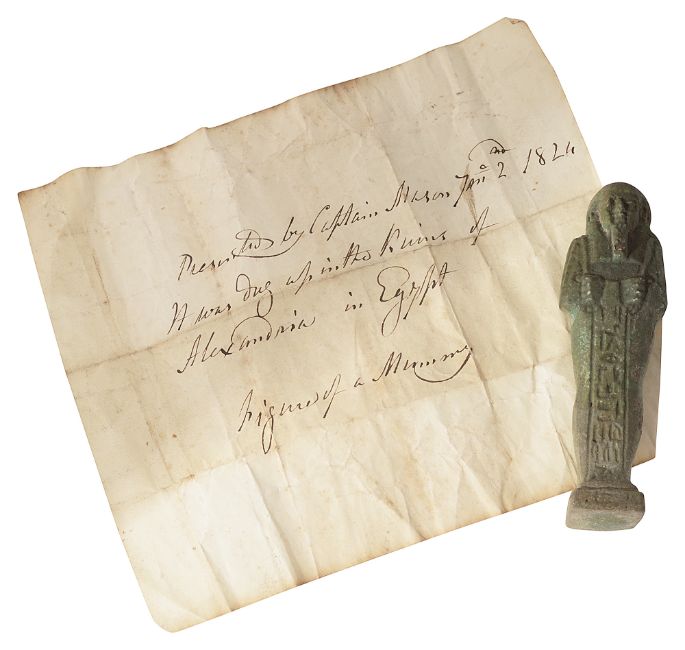 Presented by Captain Mason Jan 2nd 1824
It was dug up in the Ruins of
Alexandria in Egypt
Figure of a Mummy